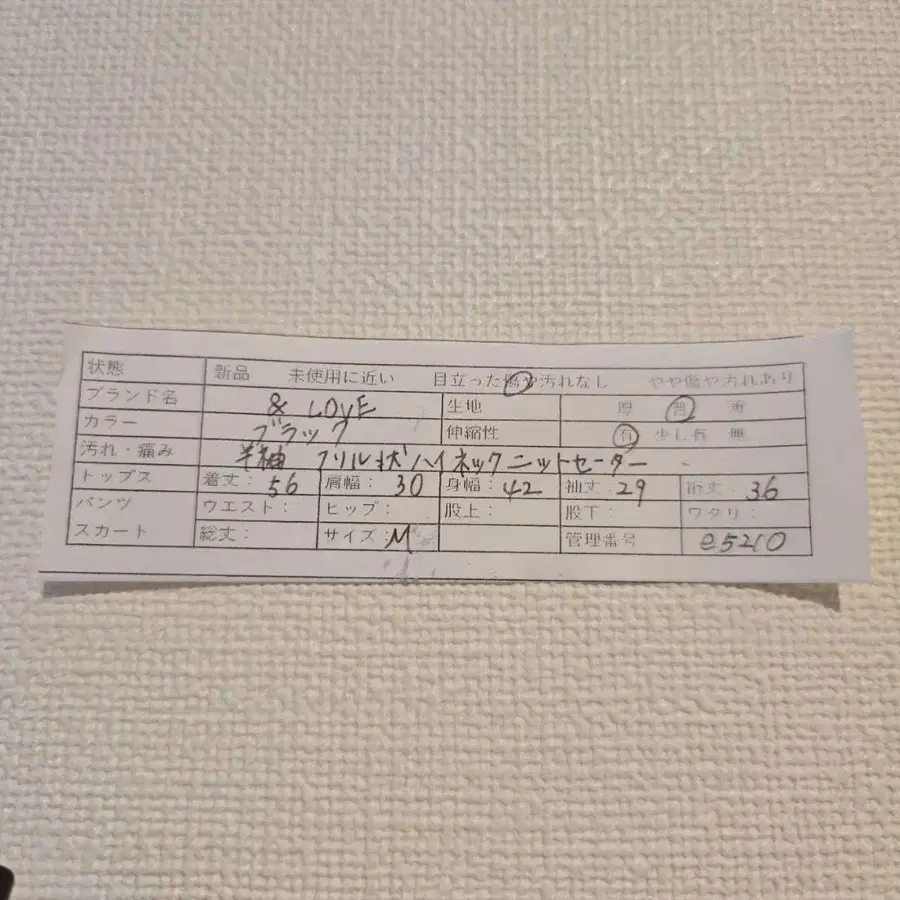 状態 新品 未使用に近い 目立った傷や汚れなし やや傷や汚れあり
ブランド名 & LOVE 生地 厚 普 薄
カラー ブラック 伸縮性 有 少し有 無
汚れ・痛み 半袖 フリル状ハイネックニットセーター
トップス 着丈: 56 肩幅: 30 身幅: 42 袖丈: 29 裄丈: 36
パンツ ウエスト: ヒップ: 股上: 股下: ワタリ:
スカート 総丈: サイズ: M 管理番号 e5210